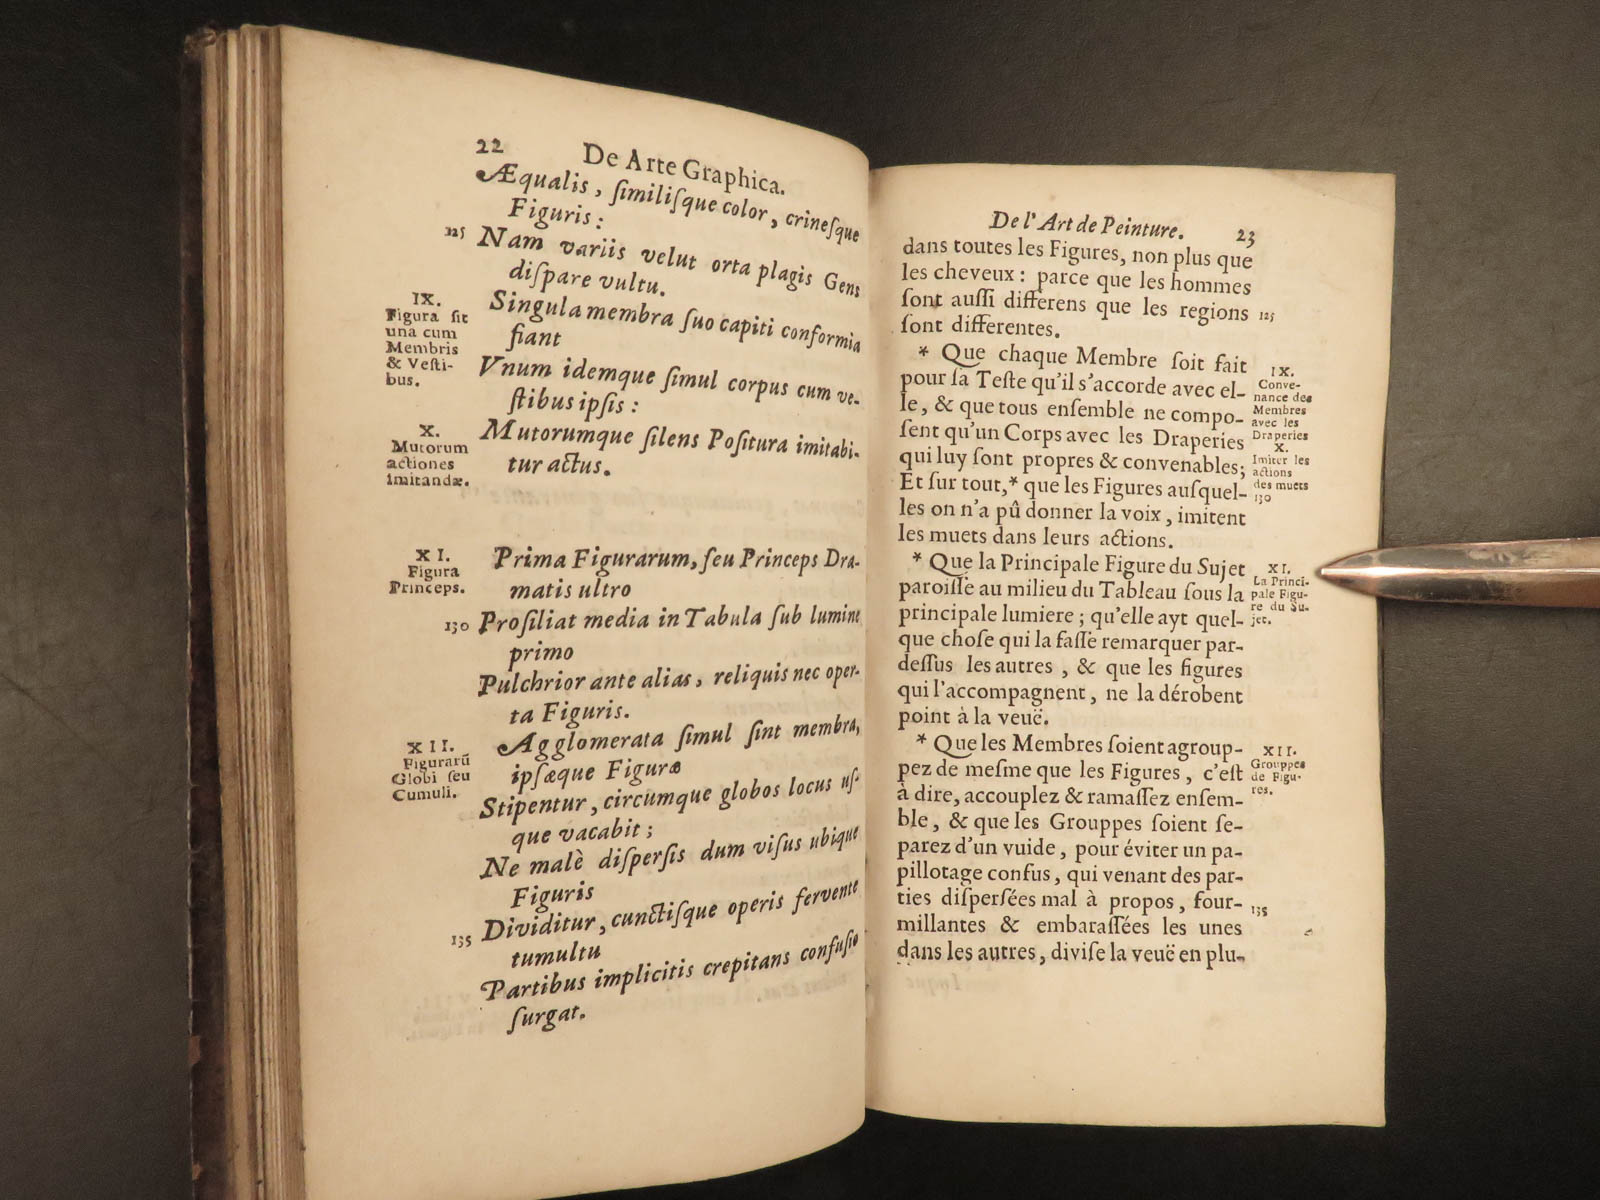 22 De Arte Graphica.
Æqualis, ſimiliſque color, crineſque
Figuris:
125 Nam variis velut orta plagis Gens
diſpare vultu.
IX.
Figura ſit
una cum
Membris
& Veſti-
bus.
Singula membra ſuo capiti conformia
fiant
Vnum idemque ſimul corpus cum ve-
ſtibus ipſis:
X.
Mutorum
actiones
imitandæ.
Mutorumque ſilens Poſitura imitabi-
tur actus.
XI.
Figura
Princeps.
Prima Figurarum, ſeu Princeps Dra-
matis ultro
130 Proſiliat media in Tabula ſub lumine
primo
Pulchrior ante alias, reliquis nec oper-
ta Figuris.
XII.
Figurarū
Globi ſeu
Cumuli.
Agglomerata ſimul ſint membra,
ipſæque Figuræ
Stipentur, circumque globos locus uſ-
que vacabit;
Ne malè diſperſis dum viſus ubique
Figuris
135 Dividitur, cunctiſque operis fervente
tumultu
Partibus implicitis crepitans confuſio
ſurgat.
De l'Art de Peinture. 23
dans toutes les Figures, non plus que
les cheveux: parce que les hommes
ſont auſſi differens que les regions 125
ſont differentes.
* Que chaque Membre ſoit fait
pour ſa Teſte qu'il s'accorde avec el-
le, & que tous enſemble ne compo-
ſent qu'un Corps avec les Draperies
qui luy ſont propres & convenables;
Et ſur tout, * que les Figures auſquel-
les on n'a pû donner la voix, imitent
les muets dans leurs actions.
IX.
Conve-
nance des
Membres
avec les
Draperies
X.
Imiter les
actions
des muets
130
* Que la Principale Figure du Sujet
paroiſſe au milieu du Tableau ſous la
principale lumiere; qu'elle ayt quel-
que choſe qui la faſſe remarquer par-
deſſus les autres, & que les figures
qui l'accompagnent, ne la dérobent
point à la veuë.
XI.
La Princi-
pale Figu-
re du Su-
jet.
* Que les Membres ſoient agroup-
pez de meſme que les Figures, c'eſt
à dire, accouplez & ramaſſez enſem-
ble, & que les Grouppes ſoient ſe-
parez d'un vuide, pour éviter un pa-
pillotage confus, qui venant des par-
ties diſperſées mal à propos, four- 135
millantes & embaraſſées les unes
dans les autres, diviſe la veuë en plu-
XII.
Grouppes
de Figu-
res.